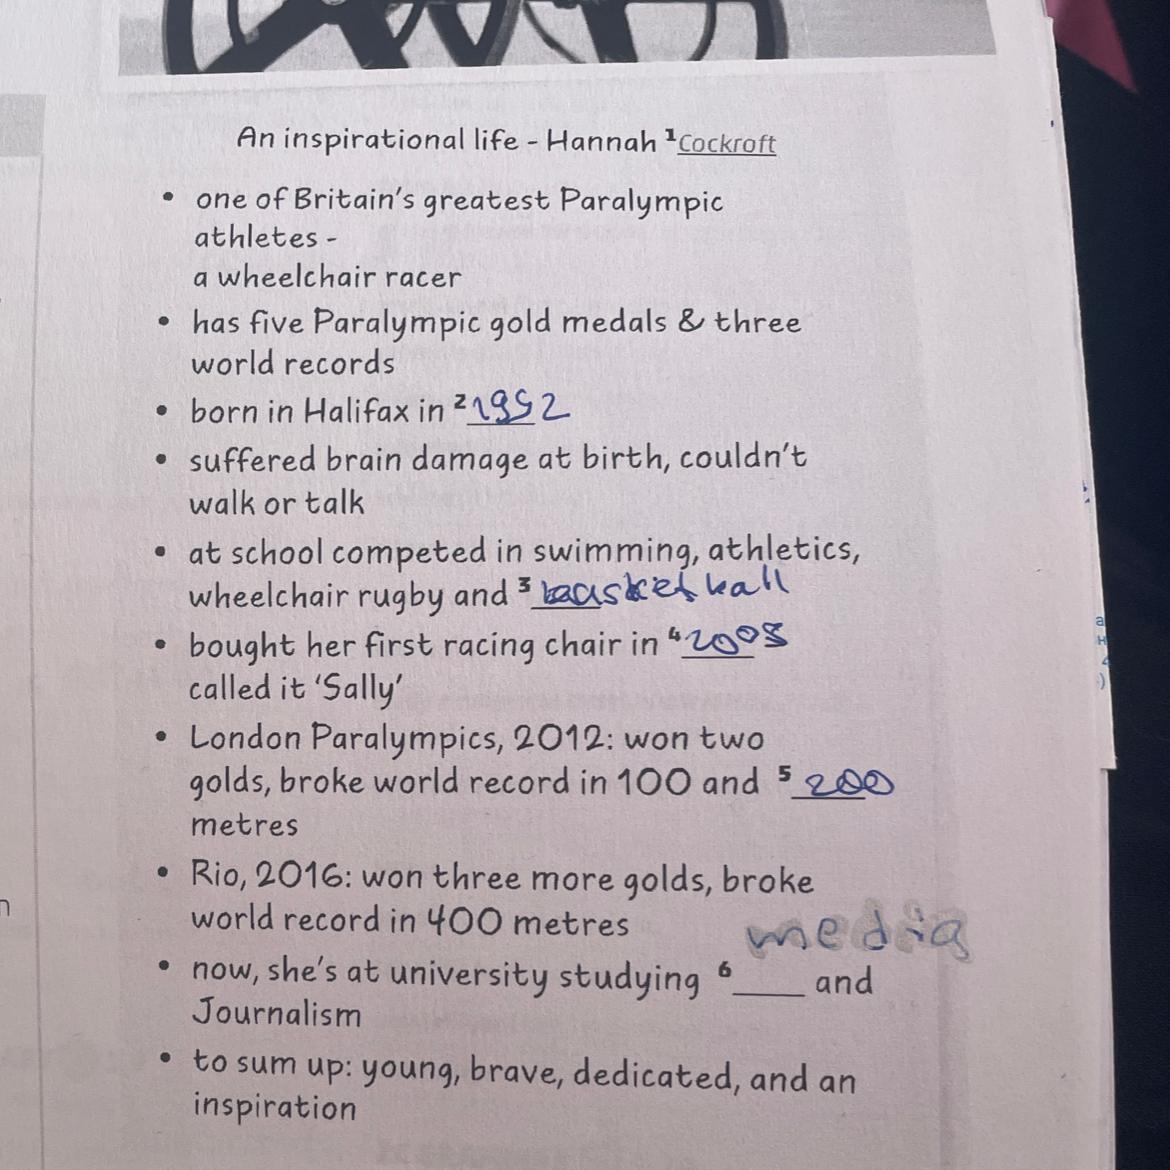 An inspirational life - Hannah ¹Cockroft
• one of Britain's greatest Paralympic
athletes -
a wheelchair racer
• has five Paralympic gold medals & three
world records
• born in Halifax in ²1992
• suffered brain damage at birth, couldn't
walk or talk
• at school competed in swimming, athletics,
wheelchair rugby and ³basketball
• bought her first racing chair in ⁴2008
called it 'Sally'
• London Paralympics, 2012: won two
golds, broke world record in 100 and ⁵200
metres
• Rio, 2016: won three more golds, broke
world record in 400 metres
media
• now, she's at university studying ⁶____ and
Journalism
• to sum up: young, brave, dedicated, and an
inspiration